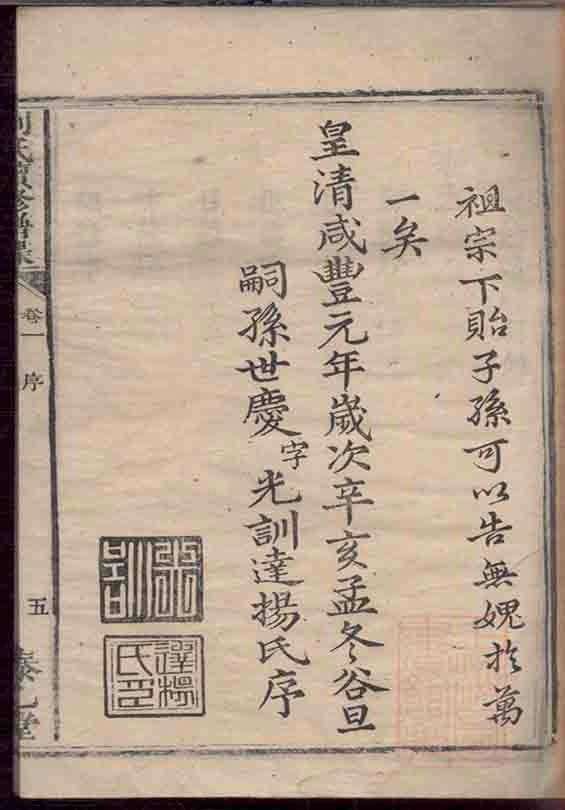 祖宗下貽子孫可以告無媿於萬
一矣
皇清咸豐元年歲次辛亥孟冬谷旦
嗣孫世慶字光訓達揚氏序
光訓
達揚氏印
氏重修譜
卷一
序
五
堂